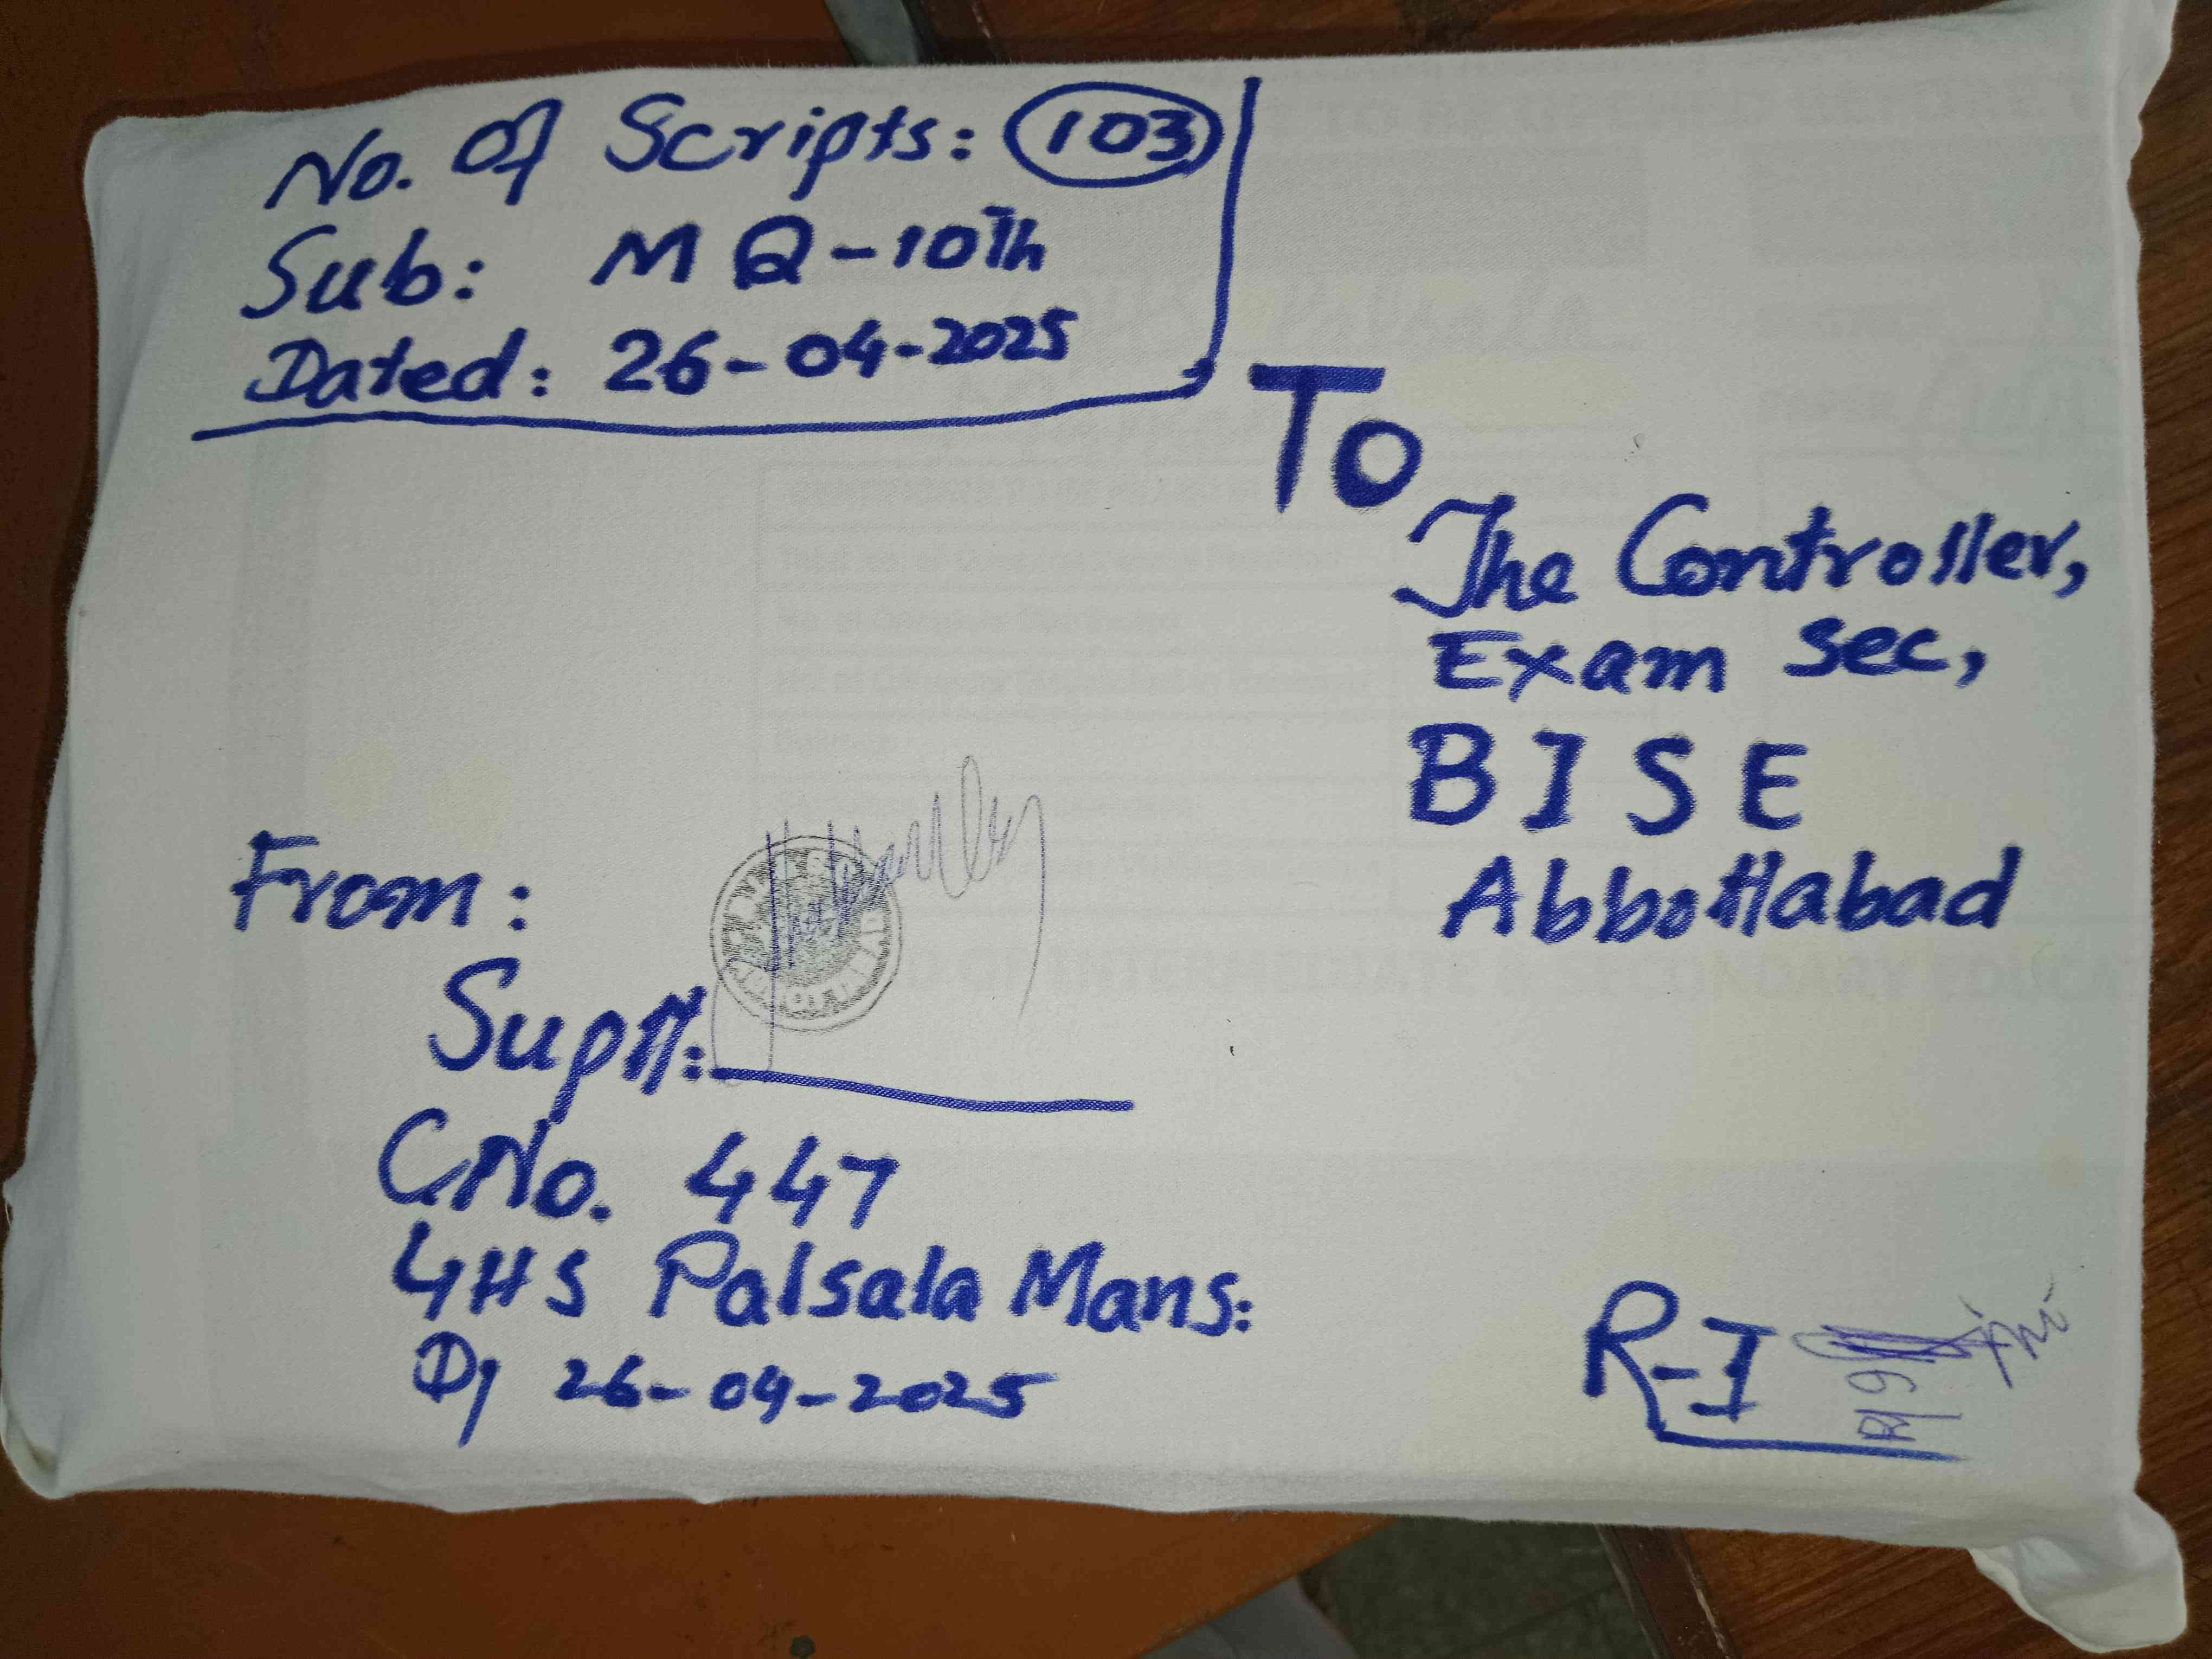 No. Of Scripts: 103
Sub: MQ-10Th
Dated: 26-04-2025
To
The Controller,
Exam Sec,
BISE
Abbottabad
From:
Suptt:
C.No. 447
GHS Palsala Mans:
D/ 26-04-2025
R-I